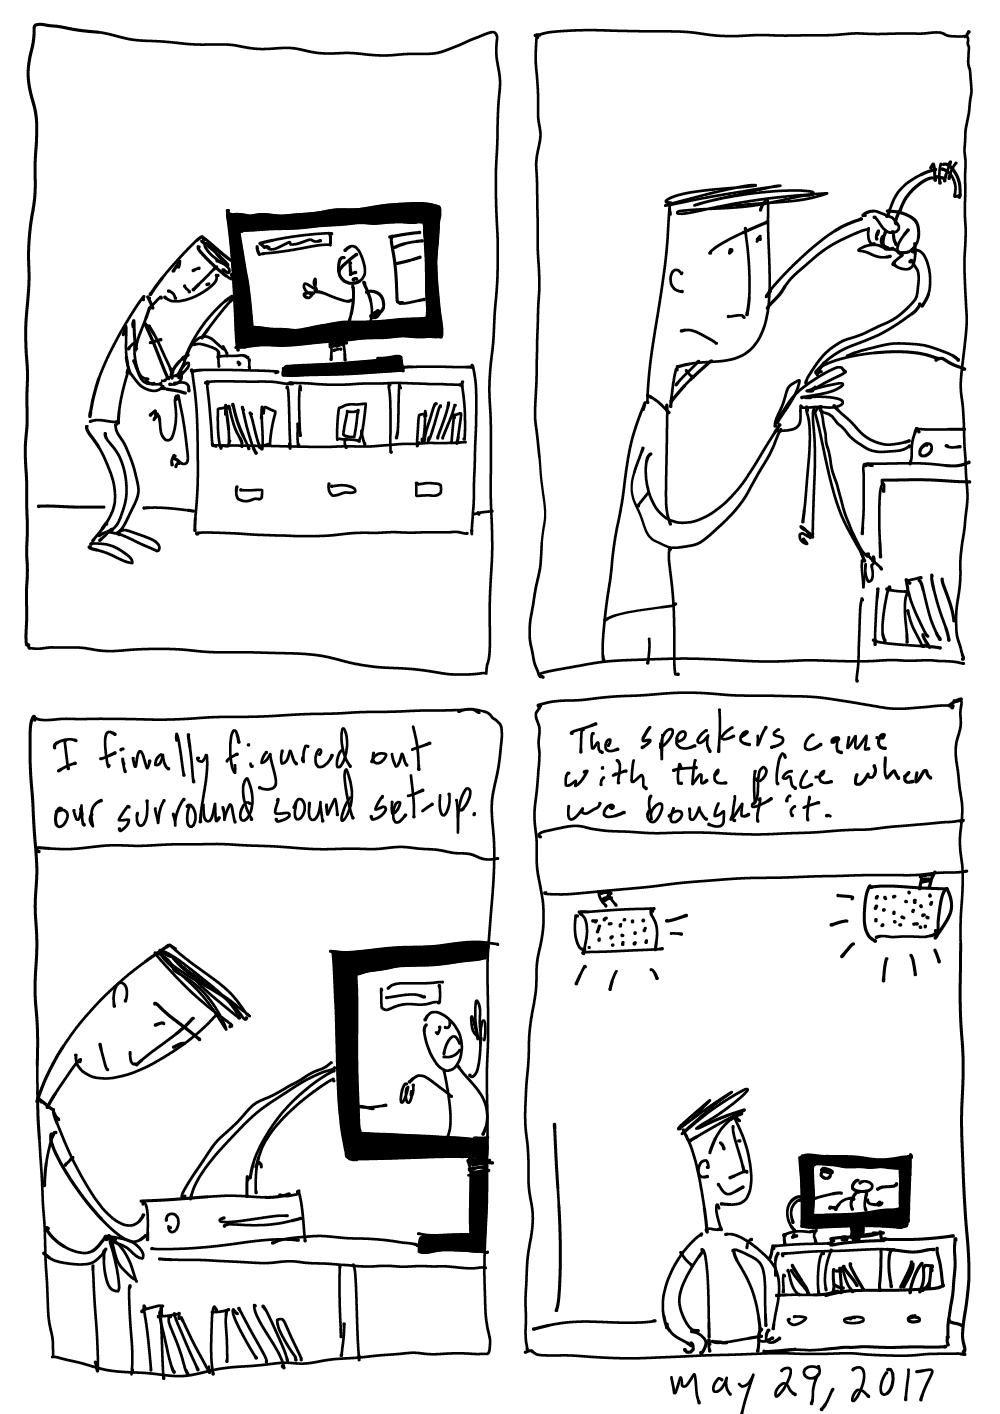 I finally figured out
our surround sound set-up.
The speakers came
with the place when
we bought it.
may 29, 2017